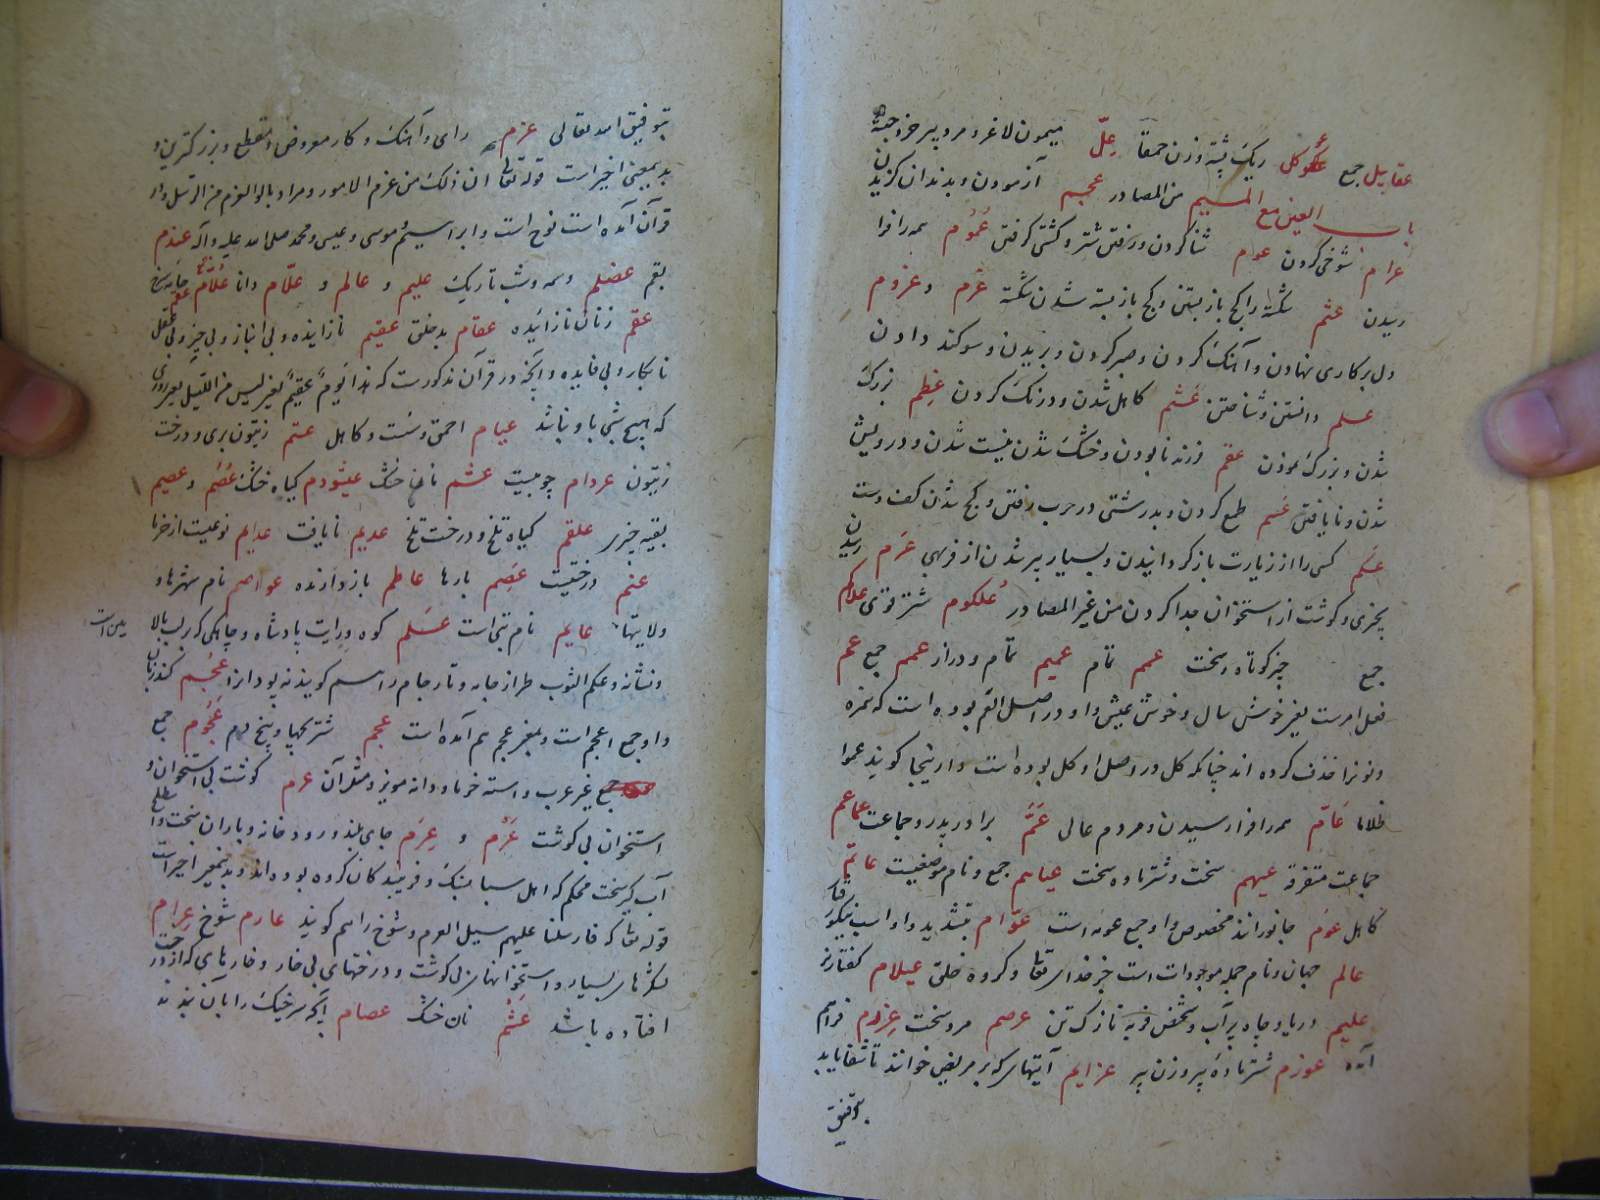 عقابیل جمع عکوکل ریک پشته و زن حمقا علّ میمون لاغر و مرد پیر خرد جثه
باب العین مع المیم من المصادر عجم آزمودن و بدندان کزیدن
عرام شوخی کردن عوام شنا کردن و رفتن شتر و کشتی کرفتن عموم همه را فرا
رسیدن عثم شکسته را کج باز بستن و کج باز بسته شدن شکسته عزم و عزوم
دل بر کاری نهادن و آهنک کردن و صبر کردن و بریدن و سوکند دادن
علم دانستن و شناختن عتم کاهل شدن و درنک کردن عظم بزرک
شدن و بزرک نمودن عقم فرزند نابودن و خشک شدن نیست شدن و درویش
شدن و نایافتن عسم طمع کردن و بدرشتی در حرب رفتن و کج شدن کف دست
عکم کسی را از زیارت باز کردانیدن و بسیار پر شدن از فربهی عرم رسیدن
بچیزی و کوشت از استخوان جدا کردن من غیر المصادر علکوم شتر قوی علاکم
جمع چیز کوتاه و سخت عمم تمام عمیم تمام و دراز عمم جمع عم
فعل امرست یعنی خوش سال و خوش عیش و او در اصل انعم بوده است که همزه
و نونرا حذف کرده اند چنانکه کل در اصل اوکل بوده است و از اینجا کویند عموا
ظلاما عامّ همه را فرا رسیدن و مردم عالی عمّ برادر پدر و جماعت عماعم
جماعت متفرقه عیهم سخت و شتر ماده سخت عیاهم جمع و نام موضعیست عاتم
کاهل عوم جانورانند مخصوص و او جمع عومه است عوّام بتشدید واو اسب نیکو رفتار
عالم جهان و نام جمله موجودات است جز خدای تعالی و کروه خلق عیلام کفتار نر
علیم دریا و چاه پر آب و شخص فربه نازک تن عرصم مرد سخت عرزم فراهم
آمده عوزم شتر ماده پیر و زن پیر عزایم آیتهای که بر مریض خوانند تا شفا یابد
بتوفیق
بتوفیق الله تعالی عزم رای و آهنک و کار معروض و مقطع و بزرکترین و
بدین معنی اخیر است قوله تعالی ان ذلک من عزم الامور و مراد باولو العزم من الرسل در
قرآن آمده است نوح است و ابراهیم و موسی و عیسی و محمد صلی الله علیه و آله عندم
بقم عضلم وسمه و شب تاریک علیم و عالم و علّام دانا علّام جامه سرخ
عقم زنان نازاینده عقام بدخلق عقیم نازاینده و بی انباز و بی چیز و بی عقل
نابکار و بی فایده و آنچه در قرآن مذکورست که هذا یوم عقیم یعنی لیس من اللیل یعنی روزی
که هیچ شبی با او نباشد عیام احمق و سست و کاهل عتم زیتون بری و درخت
زیتون عردام چوبیست عشم نان خشک عیشوم کیاه خشک عصم و عصیم
بقیه چیزی علقم کیاه تلخ و درخت تلخ عدیم نایافت عدایم نوعیست از خرما
عنم درختیست عصم بارها عاصم باز دارنده عواصم نام شهرها و
ولایتها عایم نام بتی است علم کوه و رایت پادشاه و چاهکی که بر لب بالا
و نشانه و علم الثوب طراز جامه و تار جام را هم کویند نه پود را اعجم کند زبان
و او جمع اعجم است و بمعنی عجم هم آمده است عجم شتر بچها و بیخ دم عجوم جمع
جمع غیر عرب و استه خرما و دانه مویز و مثل آن عرم کوشت بی استخوان و
استخوان بی کوشت عرم و عرم جای بلند و رود خانه و باران سخت و
آب کیر سخت محکم که اهل سبا بسنک و فر بندکان کرده بوده اند و بدین معنی اخیر است
قوله تعالی فارسلنا علیهم سیل العرم و شوخ را هم کویند عارم شوخ عرام
لشکرهای بسیار و استخوانهای بی کوشت و درختهای بی خار و خارهای که از درخت
افتاده باشد عثم نان خشک عصام آنچه سر خیک را بآن بندند